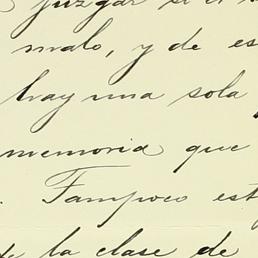 juzgar si el
malo, y de es
hay una sola
memoria que
. Tampoco est
de la clase de